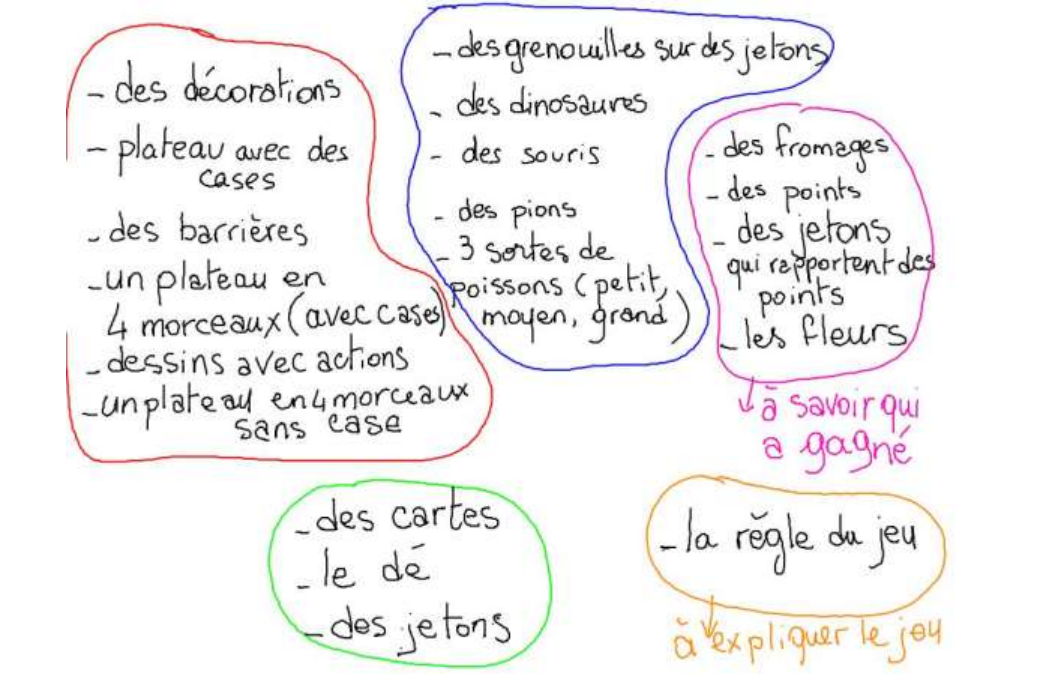 - des décorations
- plateau avec des
cases
- des barrières
- un plateau en
4 morceaux (avec cases)
- dessins avec actions
- un plateau en 4 morceaux
sans case
- des grenouilles sur des jetons
- des dinosaures
- des souris
- des pions
- 3 sortes de
poissons (petit,
moyen, grand)
- des fromages
- des points
- des jetons
qui rapportent des
points
- les fleurs
à savoir qui
a gagné
- des cartes
- le dé
- des jetons
- la règle du jeu
à expliquer le jeu